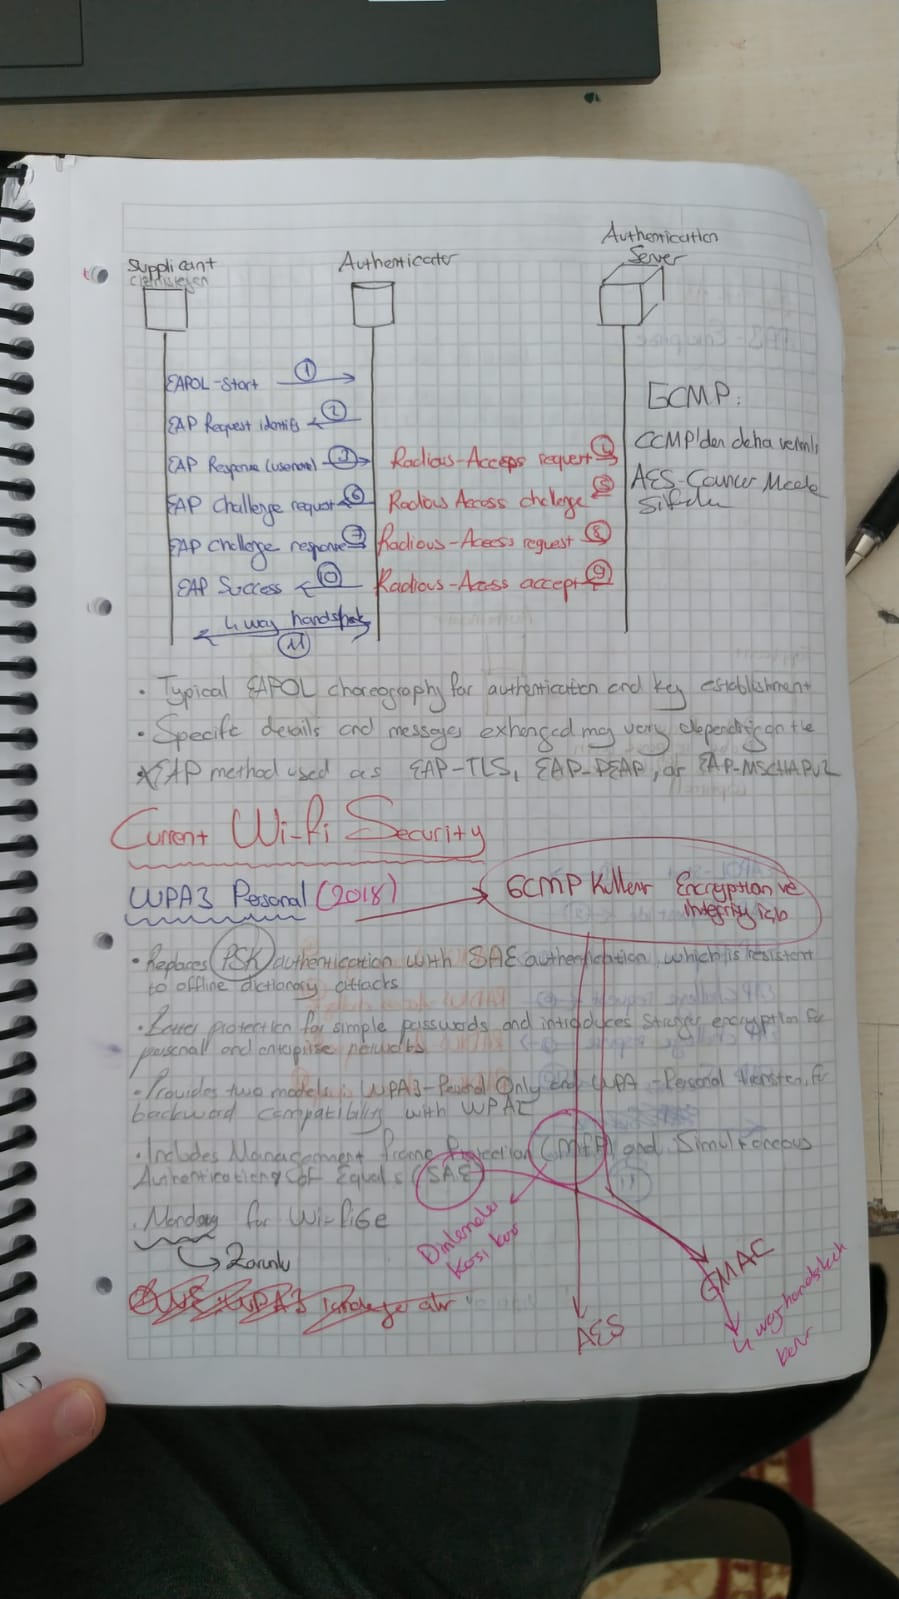 Authentication
Server
Supplicant
Authenticator
EAPOL-Start 1
EAP Request identity 2
EAP Response (username) 3
Radious-Access request 4
EAP Challenge request 6
Radious Access challenge 5
EAP challenge response 7
Radious-Access request 8
EAP Success 10
Radious-Access accept 9
4 way handshake
11
GCMP:
CCMP'den daha verimli
AES-Counter Mode
Sifreleme
• Typical EAPOL choreography for authentication and key establishment
• Specific details and messages exhanged may vary depending on the
*EAP method used as EAP-TLS, EAP-PEAP, or EAP-MSCHAPV2
Current Wi-Fi Security
WPA3 Personal (2018)
GCMP Kullanır Encryption ve
integrity için
• Replaces PSK authentication with SAE authentication, which is resistent
to offline dictionary attacks
• Better protection for simple passwords and introduces stronger encryption for
personal and enterprise networks
• Provides two models: WPA3-Personal Only and WPA-Personal Transition, for
backward compatibility with WPA2
• Includes Management Frame Protection (MFP) and Simultaneous
Authentication of Equals (SAE)
• Mandatory for Wi-Fi6e
Zorunlu
Dinlemeye
karşı korur
GMAC
4 way handshake
korur
AES